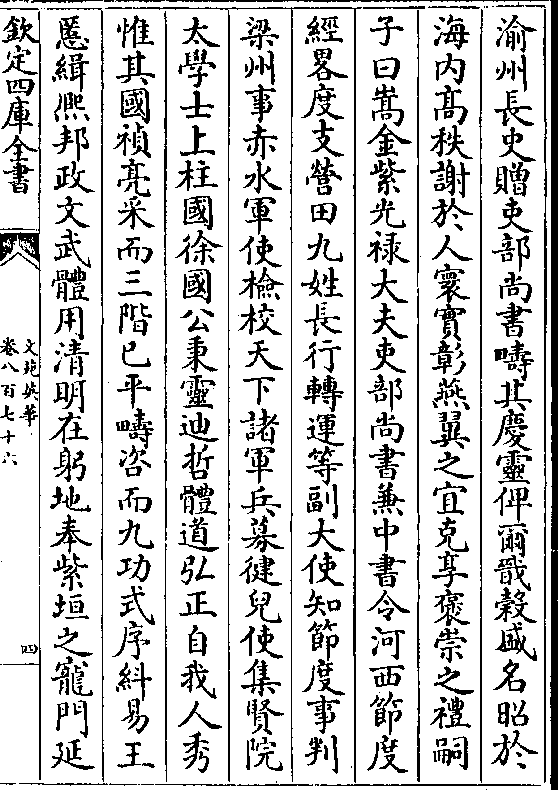 渝州長史贈吏部尚書疇其慶靈俾爾戩穀盛名昭於
海内髙秩謝於人寰實彰燕翼之宜克享褒崇之禮嗣
子曰嵩金紫光禄大夫吏部尚書兼中書令河西節度
經畧度支營田九姓長行轉運等副大使知節度事判
梁州事赤水軍使檢校天下諸軍兵募健兒使集賢院
太學士上柱國徐國公秉靈迪哲體道弘正自我人秀
惟其國禎亮采而三階已平疇咨而九功式序糾易王
慝緝熈邦政文武體用清明在躬地奉紫垣之寵門延
欽定四庫全書
文苑英華
卷八百七十六
四